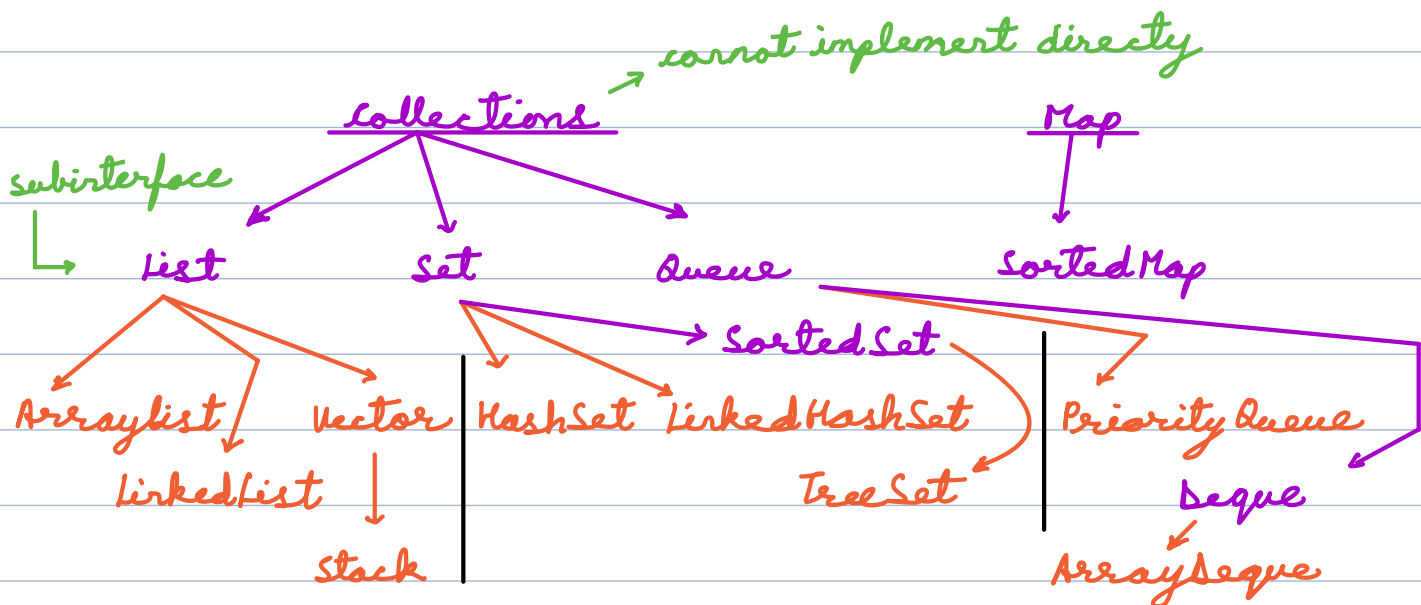 cannot implement directy
Collections Map
subinterface
List Set Queue SortedMap
SortedSet
Arraylist Vector HashSet LinkedHashSet PriorityQueue
LinkedList TreeSet Deque
Stack ArrayDeque